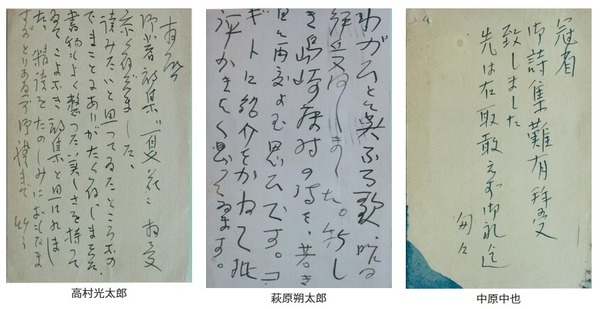 拝啓
御著詩集"夏花"拝受
存じました、
読みたいと思つてゐたところなの
でまことにありがたく存じました、
書物もよく整つた美しさを持つて
詩集と思はれまし
た、精読をたのしみに
とりあへず御禮まで
高村光太郎
わがひとに與ふる歌、昨日
しました。新し
き島崎藤村の詩を、若き
日に再度よむ思ひです。コ
ギトに紹介をかねて批
評かきたく思つてゐます。
萩原朔太郎
冠省
御詩集難有拝受
致しました
先は右取敢えず御礼迄
匆々
中原中也